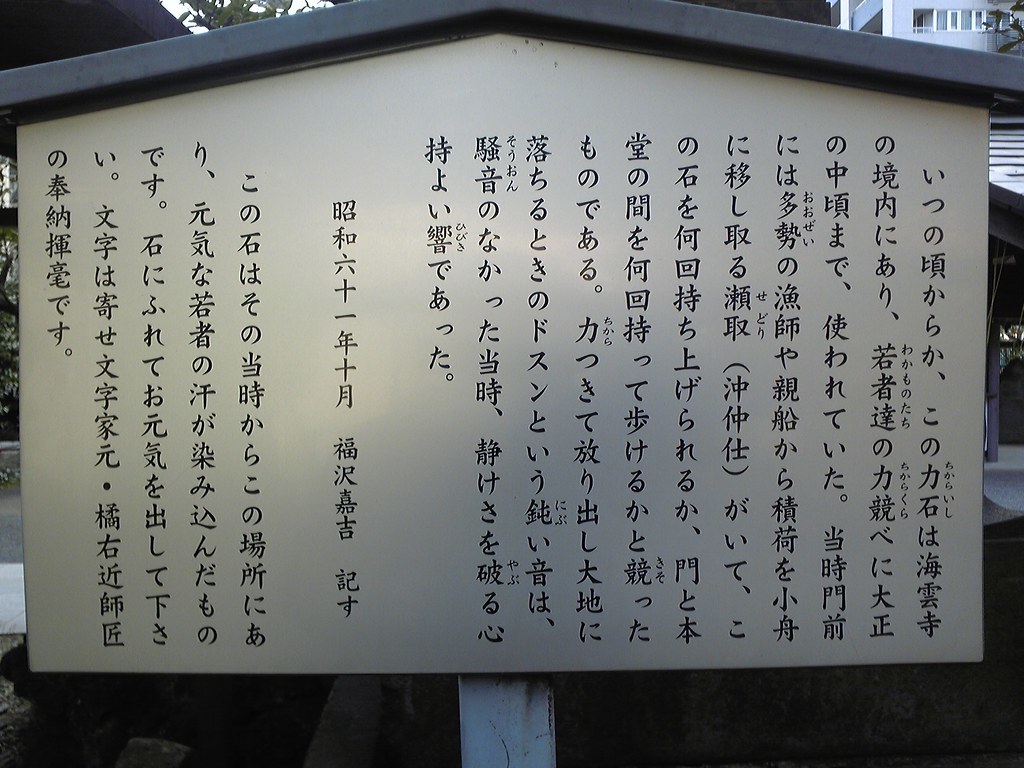 いつの頃からか、この力石は海雲寺
の境内にあり、若者達の力競べに大正
の中頃まで、使われていた。当時門前
には多勢の漁師や親船から積荷を小舟
に移し取る瀬取（沖仲仕）がいて、こ
の石を何回持ち上げられるか、門と本
堂の間を何回持って歩けるかと競った
ものである。力つきて放り出し大地に
落ちるときのドスンという鈍い音は、
騒音のなかった当時、静けさを破る心
持よい響であった。
昭和六十一年十月　福沢嘉吉　記す
この石はその当時からこの場所にあ
り、元気な若者の汗が染み込んだもの
です。石にふれてお元気を出して下さ
い。文字は寄せ文字家元・橘右近師匠
の奉納揮毫です。